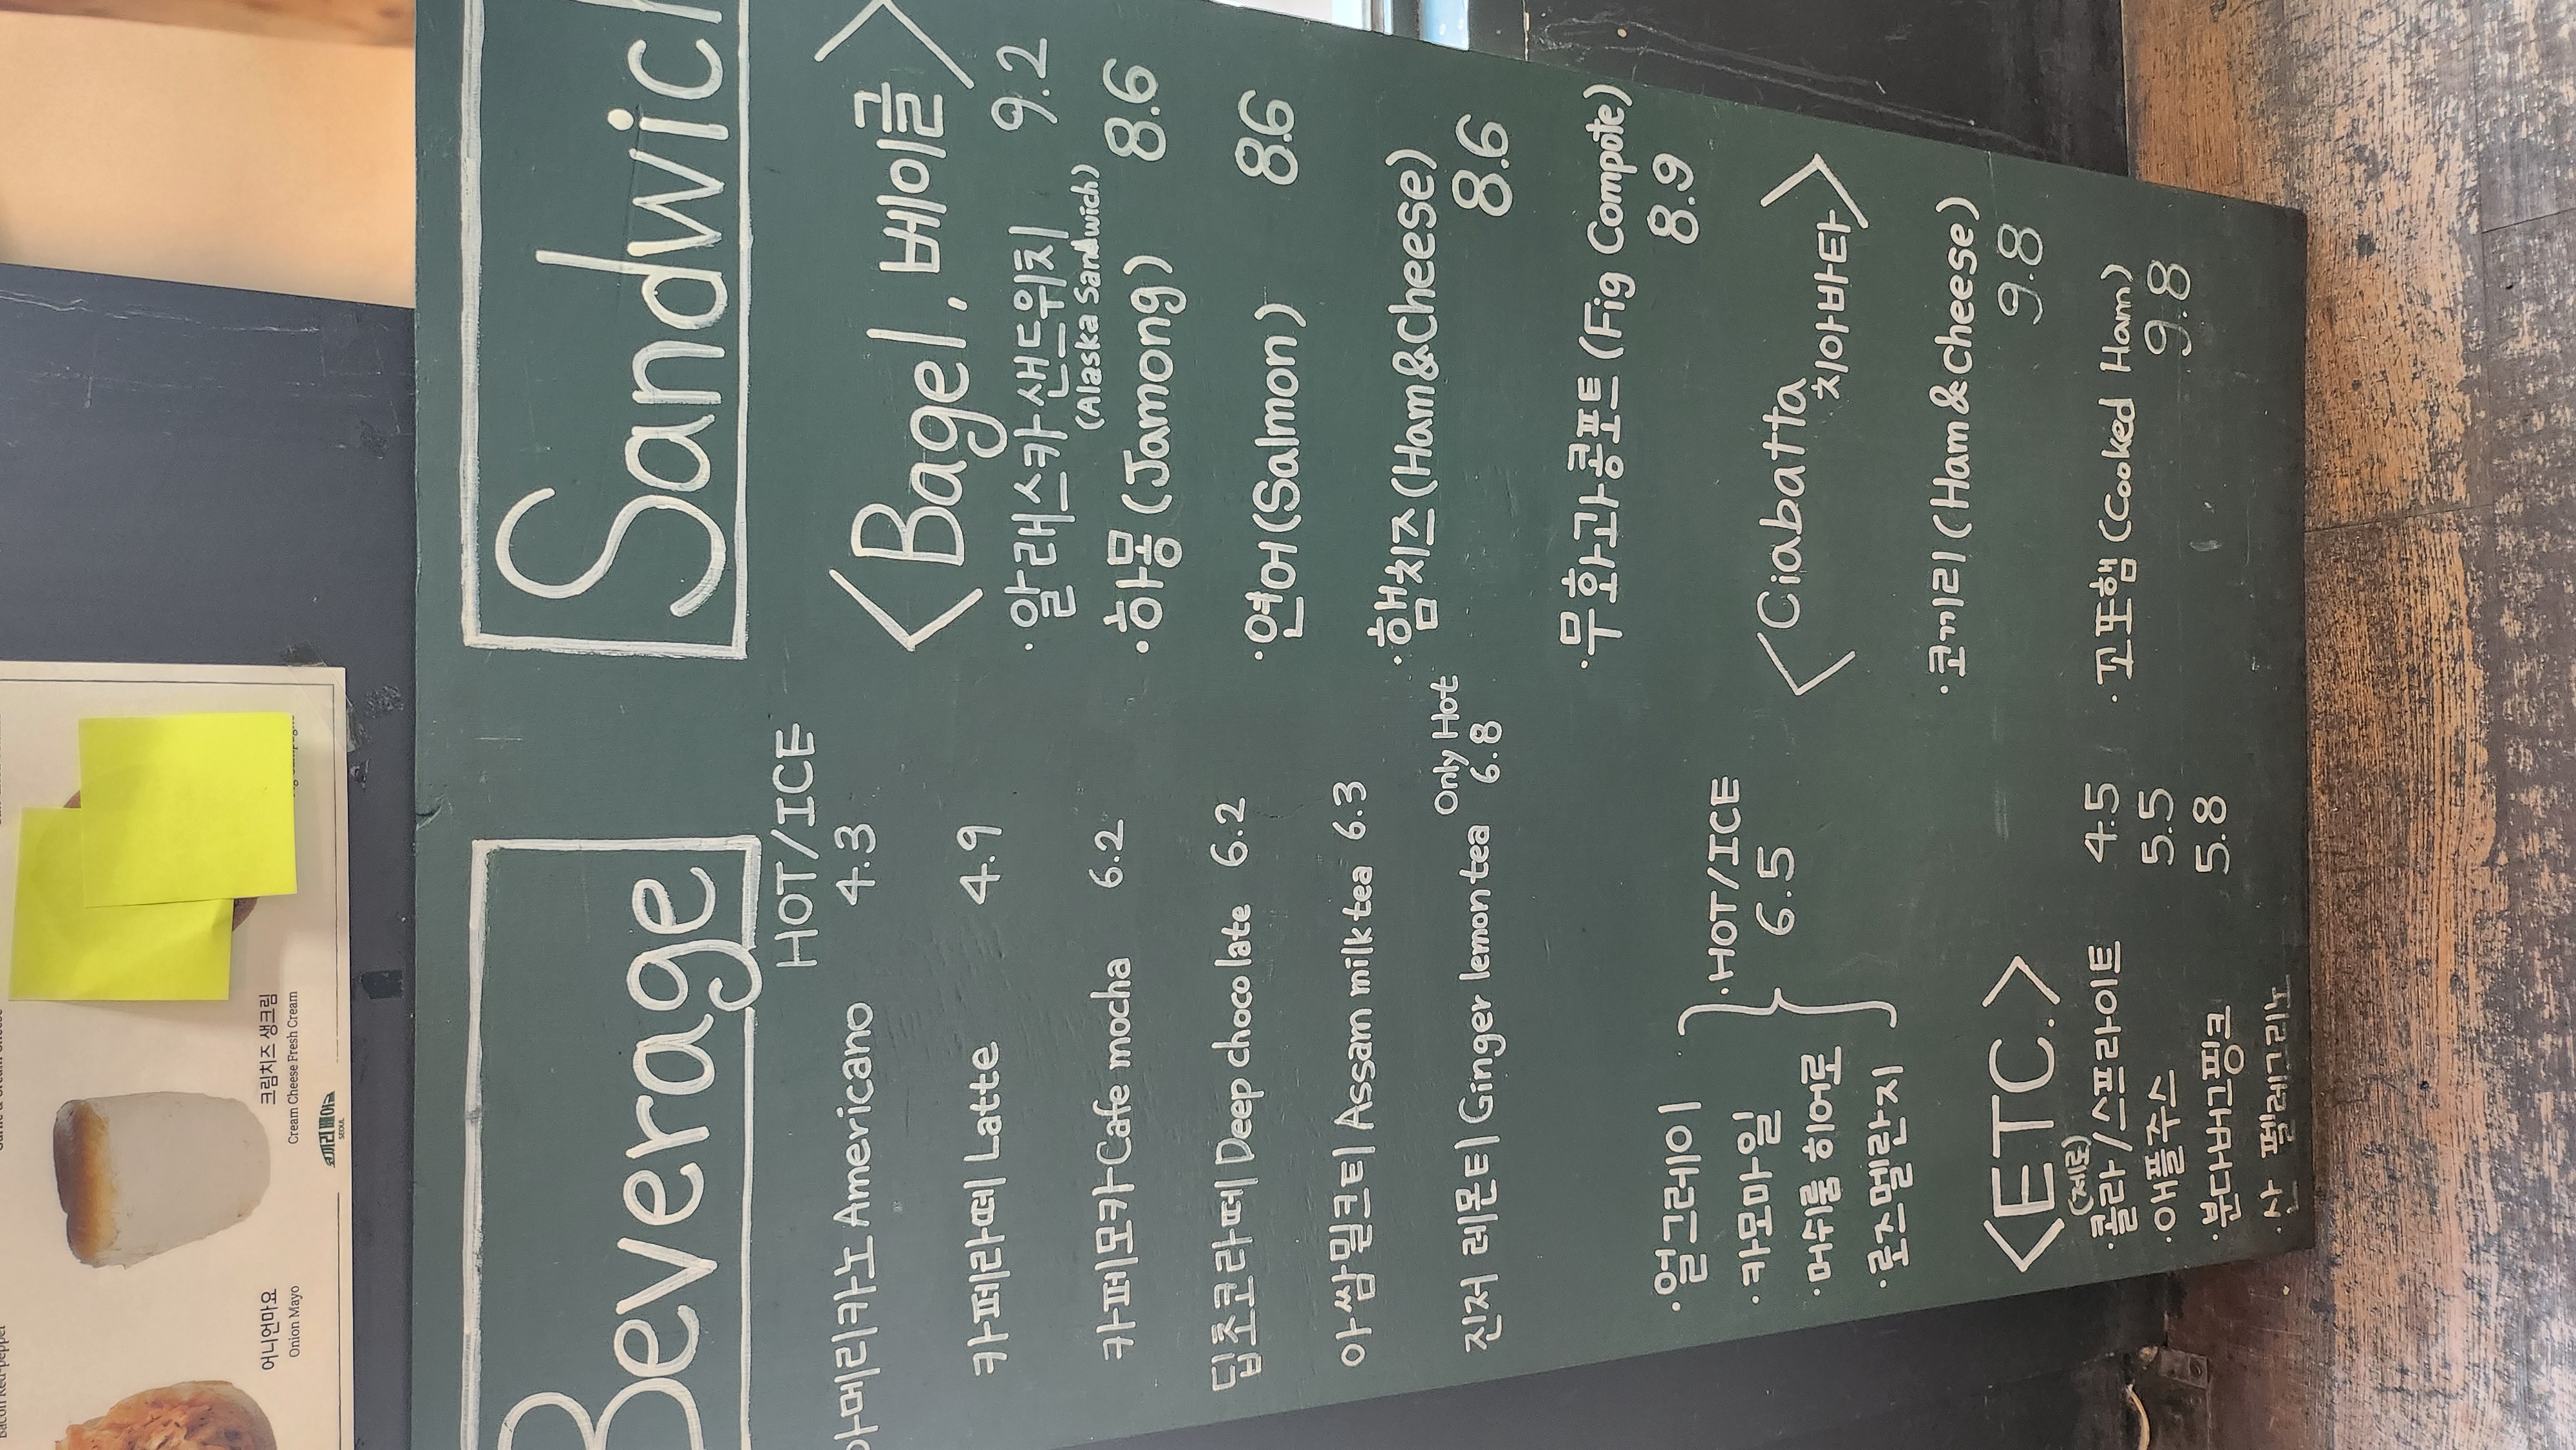 Beverage
HOT/ICE
아메리카노 Americano 4.3
카페라떼 Latte 4.9
카페모카 Cafe mocha 6.2
딥초코라떼 Deep chocolate 6.2
아쌈밀크티 Assam milk tea 6.3
Only Hot
진저 레몬티 Ginger lemon tea 6.8
·얼그레이
·카모마일
·머쉬룸 히어로
·로즈멜란지
·HOT/ICE
6.5
<ETC.>
(제로)
·콜라/스프라이트 4.5
·애플쥬스 5.5
·분다버그핑크 5.8
·산 펠레그리노
Sandwich
<Bagel, 베이글>
·알래스카 샌드위치 9.2
(Alaska Sandwich)
·하몽 (Jamong) 8.6
·연어 (Salmon) 8.6
·햄치즈 (Ham&Cheese)
8.6
·무화과콩포트 (Fig Compote)
8.9
<Ciabatta
치아바타>
·코끼리 (Ham&Cheese)
9.8
·꼬또햄 (Cooked Ham)
9.8
어니언마요
Onion Mayo
크림치즈 생크림
Cream Cheese Fresh Cream
코끼리베이글
SEOUL